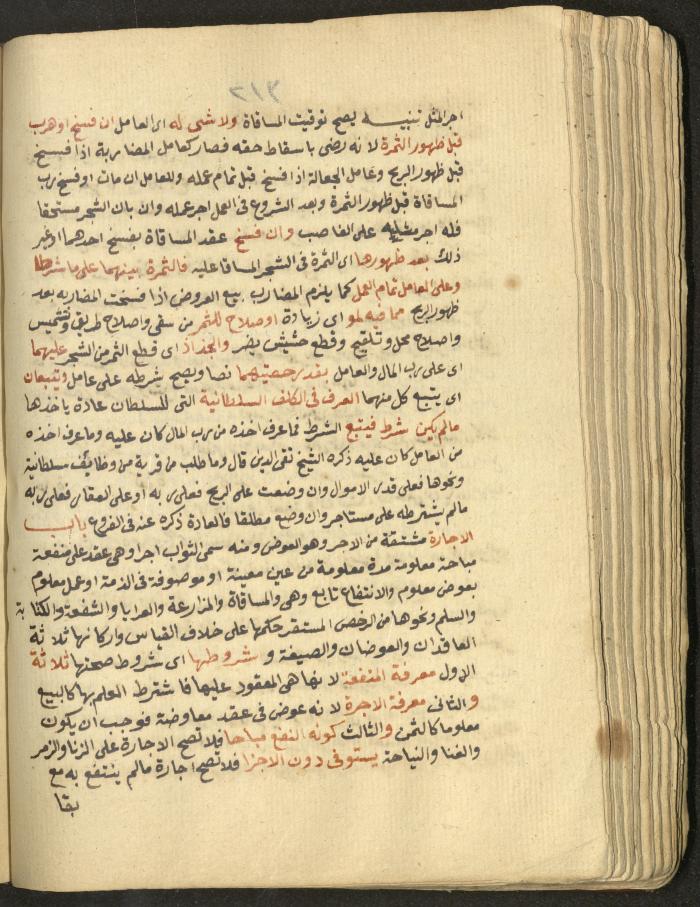 ٢١٣
اجر المثل تنبيه يصح توقيت المساقاة ولا شى له اى العامل ان فسخ او هرب
قبل ظهور الثمرة لانه رضى باسقاط حقه فصار كعامل المضاربة اذا فسخ
قبل ظهور الربح وعامل الجعالة اذا فسخ قبل تمام عمله وللعامل ان مات او فسخ رب
المساقاة قبل ظهور الثمرة وبعد الشروع فى العمل اجر عمله وان بان الشجر مستحقا
فله اجر مثله على الغاصب وان فسخ عقد المساقاة بفسخ احدهما او غير
ذلك بعد ظهورها اى الثمرة فى الشجر المساقا عليه فالثمرة بينهما على ما شرطا
وعلى العامل تمام العمل كما يلزم المضارب بيع العروض اذا فسخت المضاربه بعد
ظهور الربح مما فيه نمو اى زيادة او صلاح للثمر من سقى واصلاح طريق وتشميس
واصلاح محل وتلقيح وقطع حشيش يضر والجذاذ اى قطع الثمر من الشجر عليهما
اى على رب المال والعامل بقدر حصتيهما نصا ويصح شرطه على عامل ويتبعان
اى يتبع كل منهما العرف فى الكلف السلطانية التى للسلطان عادة ياخذها
مالم يكن شرط فيتبع الشرط فما عرف اخذه من رب المال كان عليه وما عرف اخذه
من العامل كان عليه ذكره الشيخ تقى الدين قال وما طلب من قرية من وظايف سلطانية
ونحوها فعلى قدر الاموال وان وضعت على الزرع فعلى ربه او على العقار فعلى ربه
مالم يشترطه على مستاجر وان وضع مطلقا فالعادة ذكره عنه فى الفروع باب
الاجارة مشتقة من الاجر وهو العوض ومنه سمى الثواب اجرا وهى عقد على منفعة
مباحة معلومة مدة معلومة من عين معينة او موصوفة فى الذمة او عمل معلوم
بعوض معلوم والانتفاع تابع وهى والمساقاة والمزارعة والعرايا والشفعة والكتابة
والسلم ونحوها من الرخص المستقر حكمها على خلاف القياس واركانها ثلاثة
العاقدان والعوضان والصيغة و شروطها اى شروط صحتها ثلاثة
الاول معرفة المنفعة لانها هى المعقود عليها فاشترط العلم بها كالبيع
و الثانى معرفة الاجرة لانه عوض فى عقد معاوضة فوجب ان يكون
معلوما كالثمن والثالث كونه النفع مباحا فلا تصح الاجارة على الزنا والزمر
والغنا والنياحة يستوفى دون الاجزا فلا تصح اجارة مالم ينتفع به مع
بقا